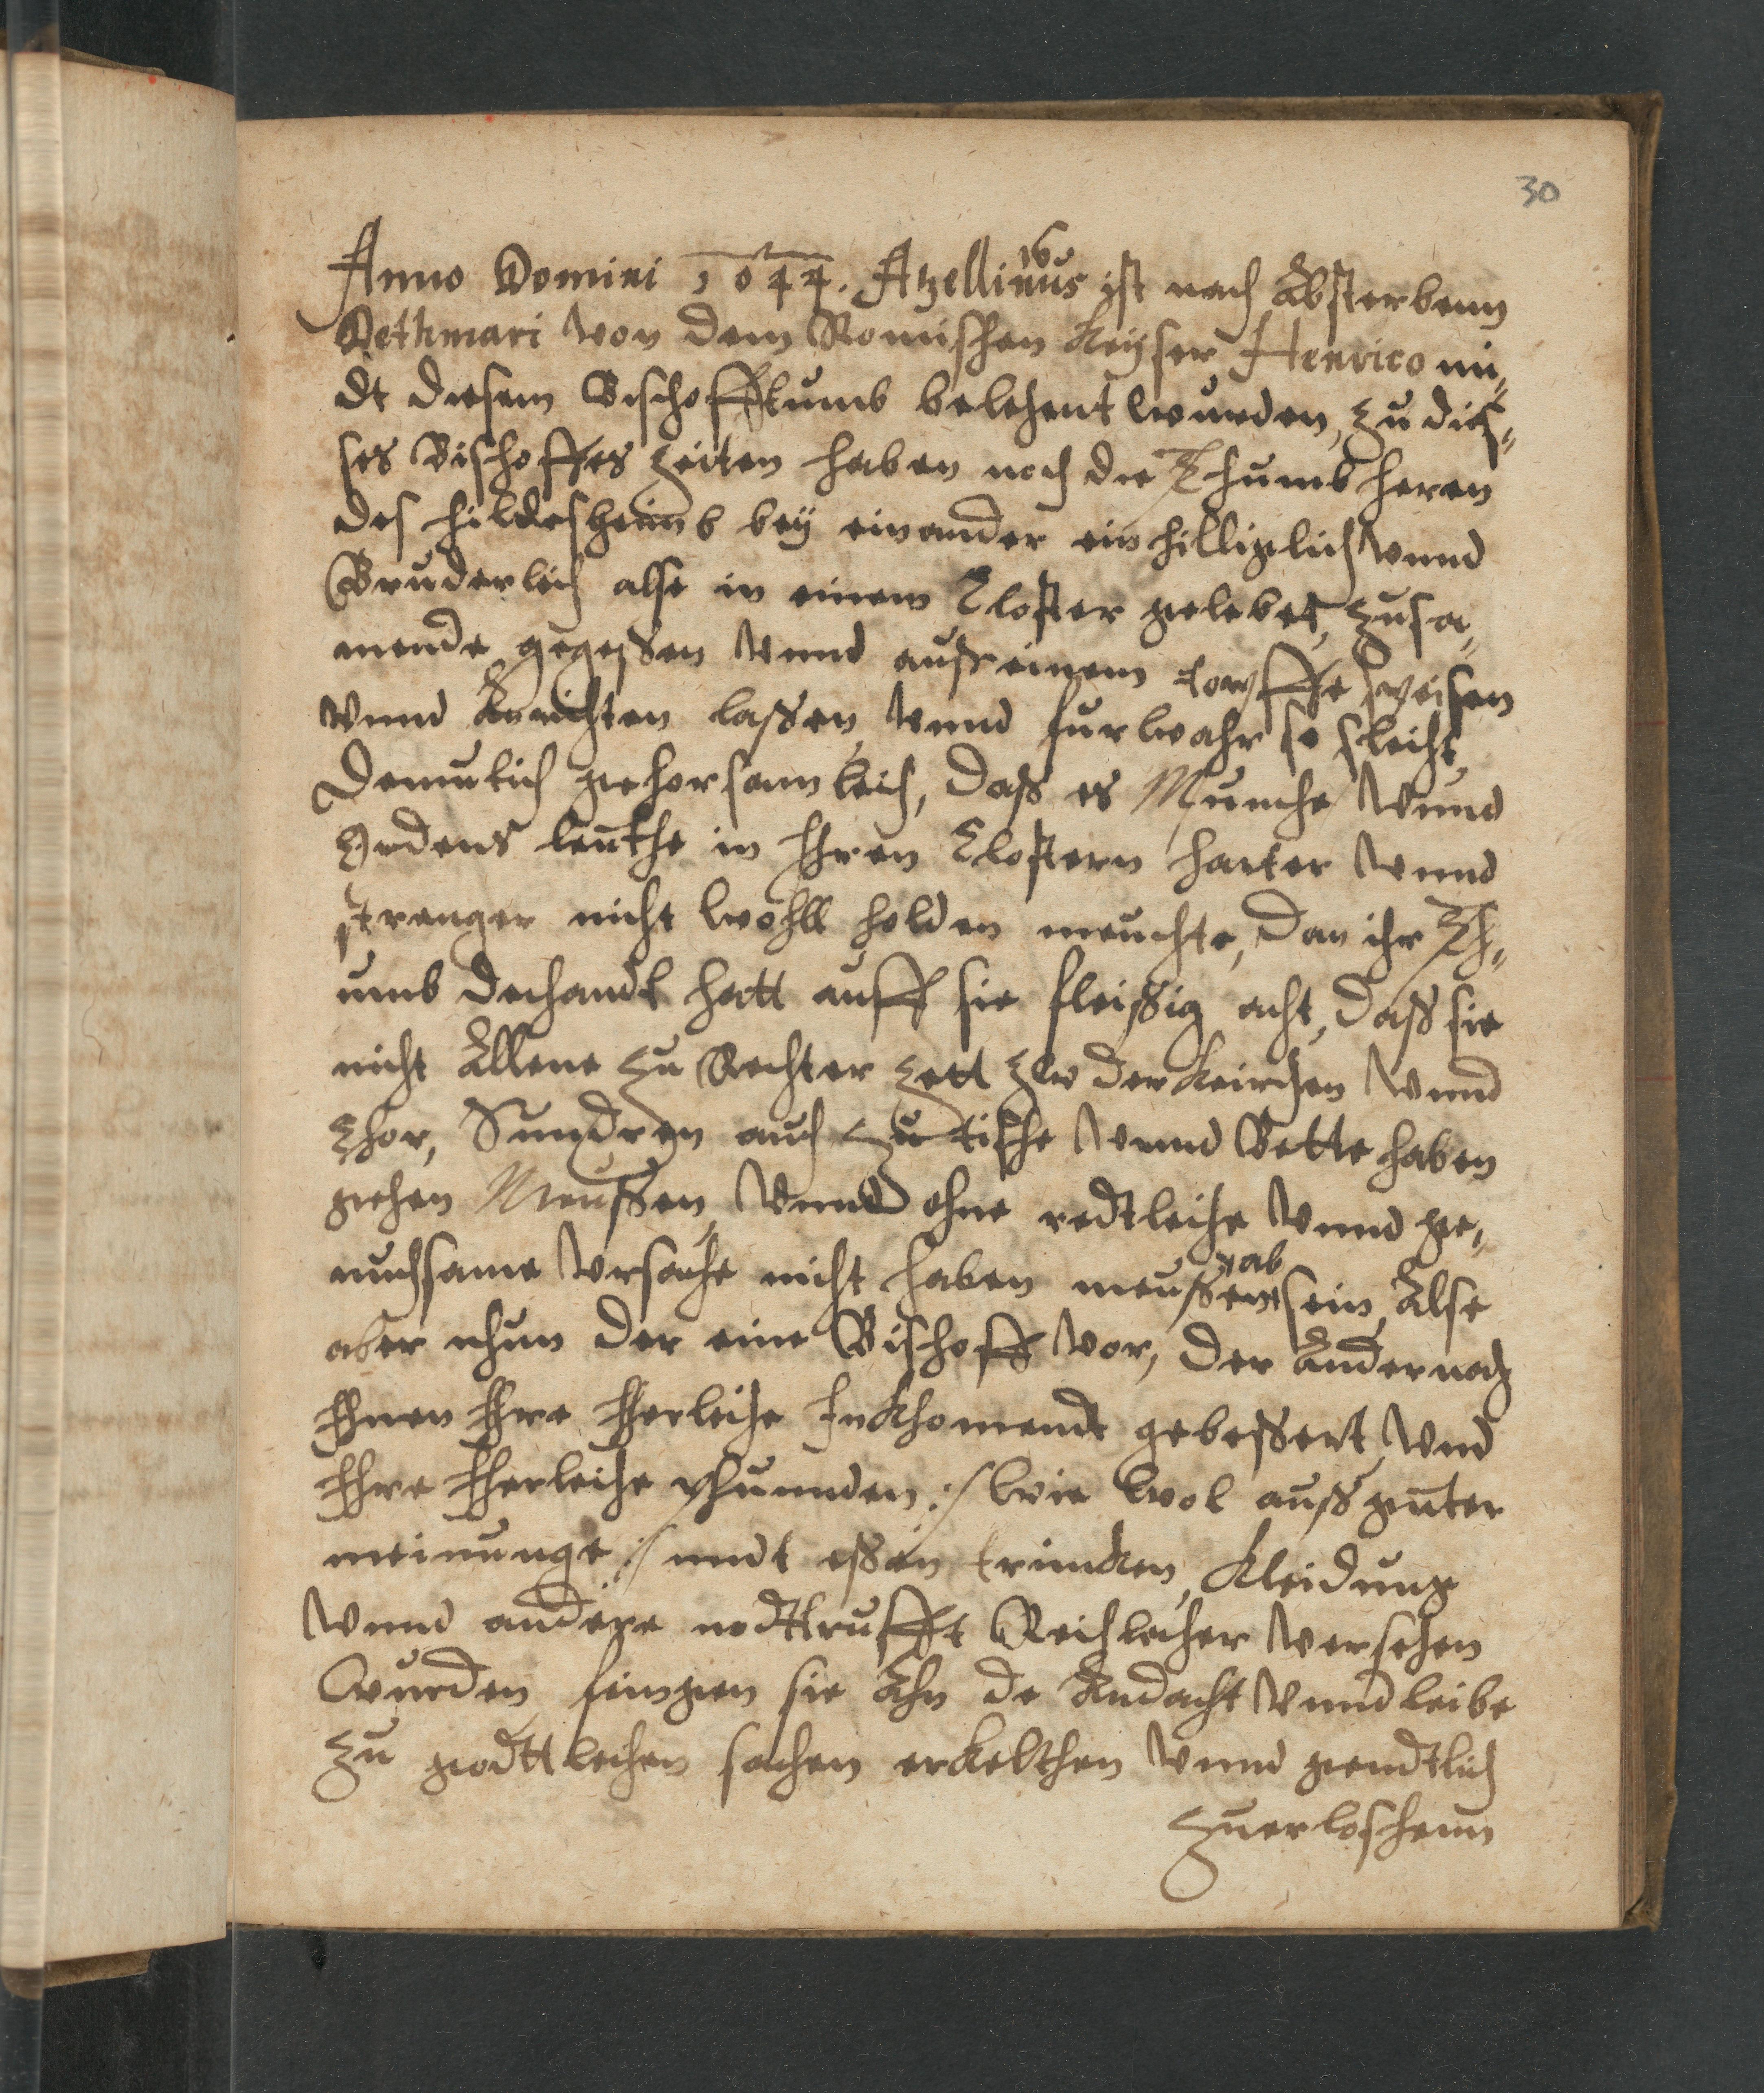 30
16
Anno Domini 1044. Atzellinus ist nach Absterbenn
Dethmari von dem Romischen Keyser Henrico mi„
dt diesem Bischoffthumb belehent wurden, zu diß„
ses Bischoffes Zeiten haben noch die Thumb heren
des hildesheimb bey einander ein hilliglich vnnd
Bruderlich alse in einem Closter gelebet, zusa„
mende gegessen vnnd auss einem topffe speisen
vnnd Anrichten lassen, vnnd furwahr so slecht
Demutich gehorsamleich, dass es Munche vnnd
Ordens leuthe in Ihren Clostern harter vnnd
stranger nicht wohll holden meuchte, dan ihr Th„
umb dechandt hatt auff sie fleissig acht, dass sie
nicht Allene zu Rechter zett zw der Keirchen vnnd
Chor, Sundren auch zu tische vnnd Bette haben
gehen Meussen, vnnd ohne redtleiche vnnd ge„
nuchsame vrsache nicht haben meussen ab sein, Alse
aber nhun der eine Bischoff vor, der Ander nach
Ihnen Ihre Jherleiche Inkhomendt gebessert, vnd
Ihre Jherleiche phrunden :/ wie wol auss guter
meinunge :/ midt essen trincken, Kleidung
vnnd andere nodttrufft Reichlicher versehen
wurden, fengen sie Ahn de Andacht vnnd leibe
zu godttleichen sachen erkelthen vnnd gendtlich
zuerloschenn